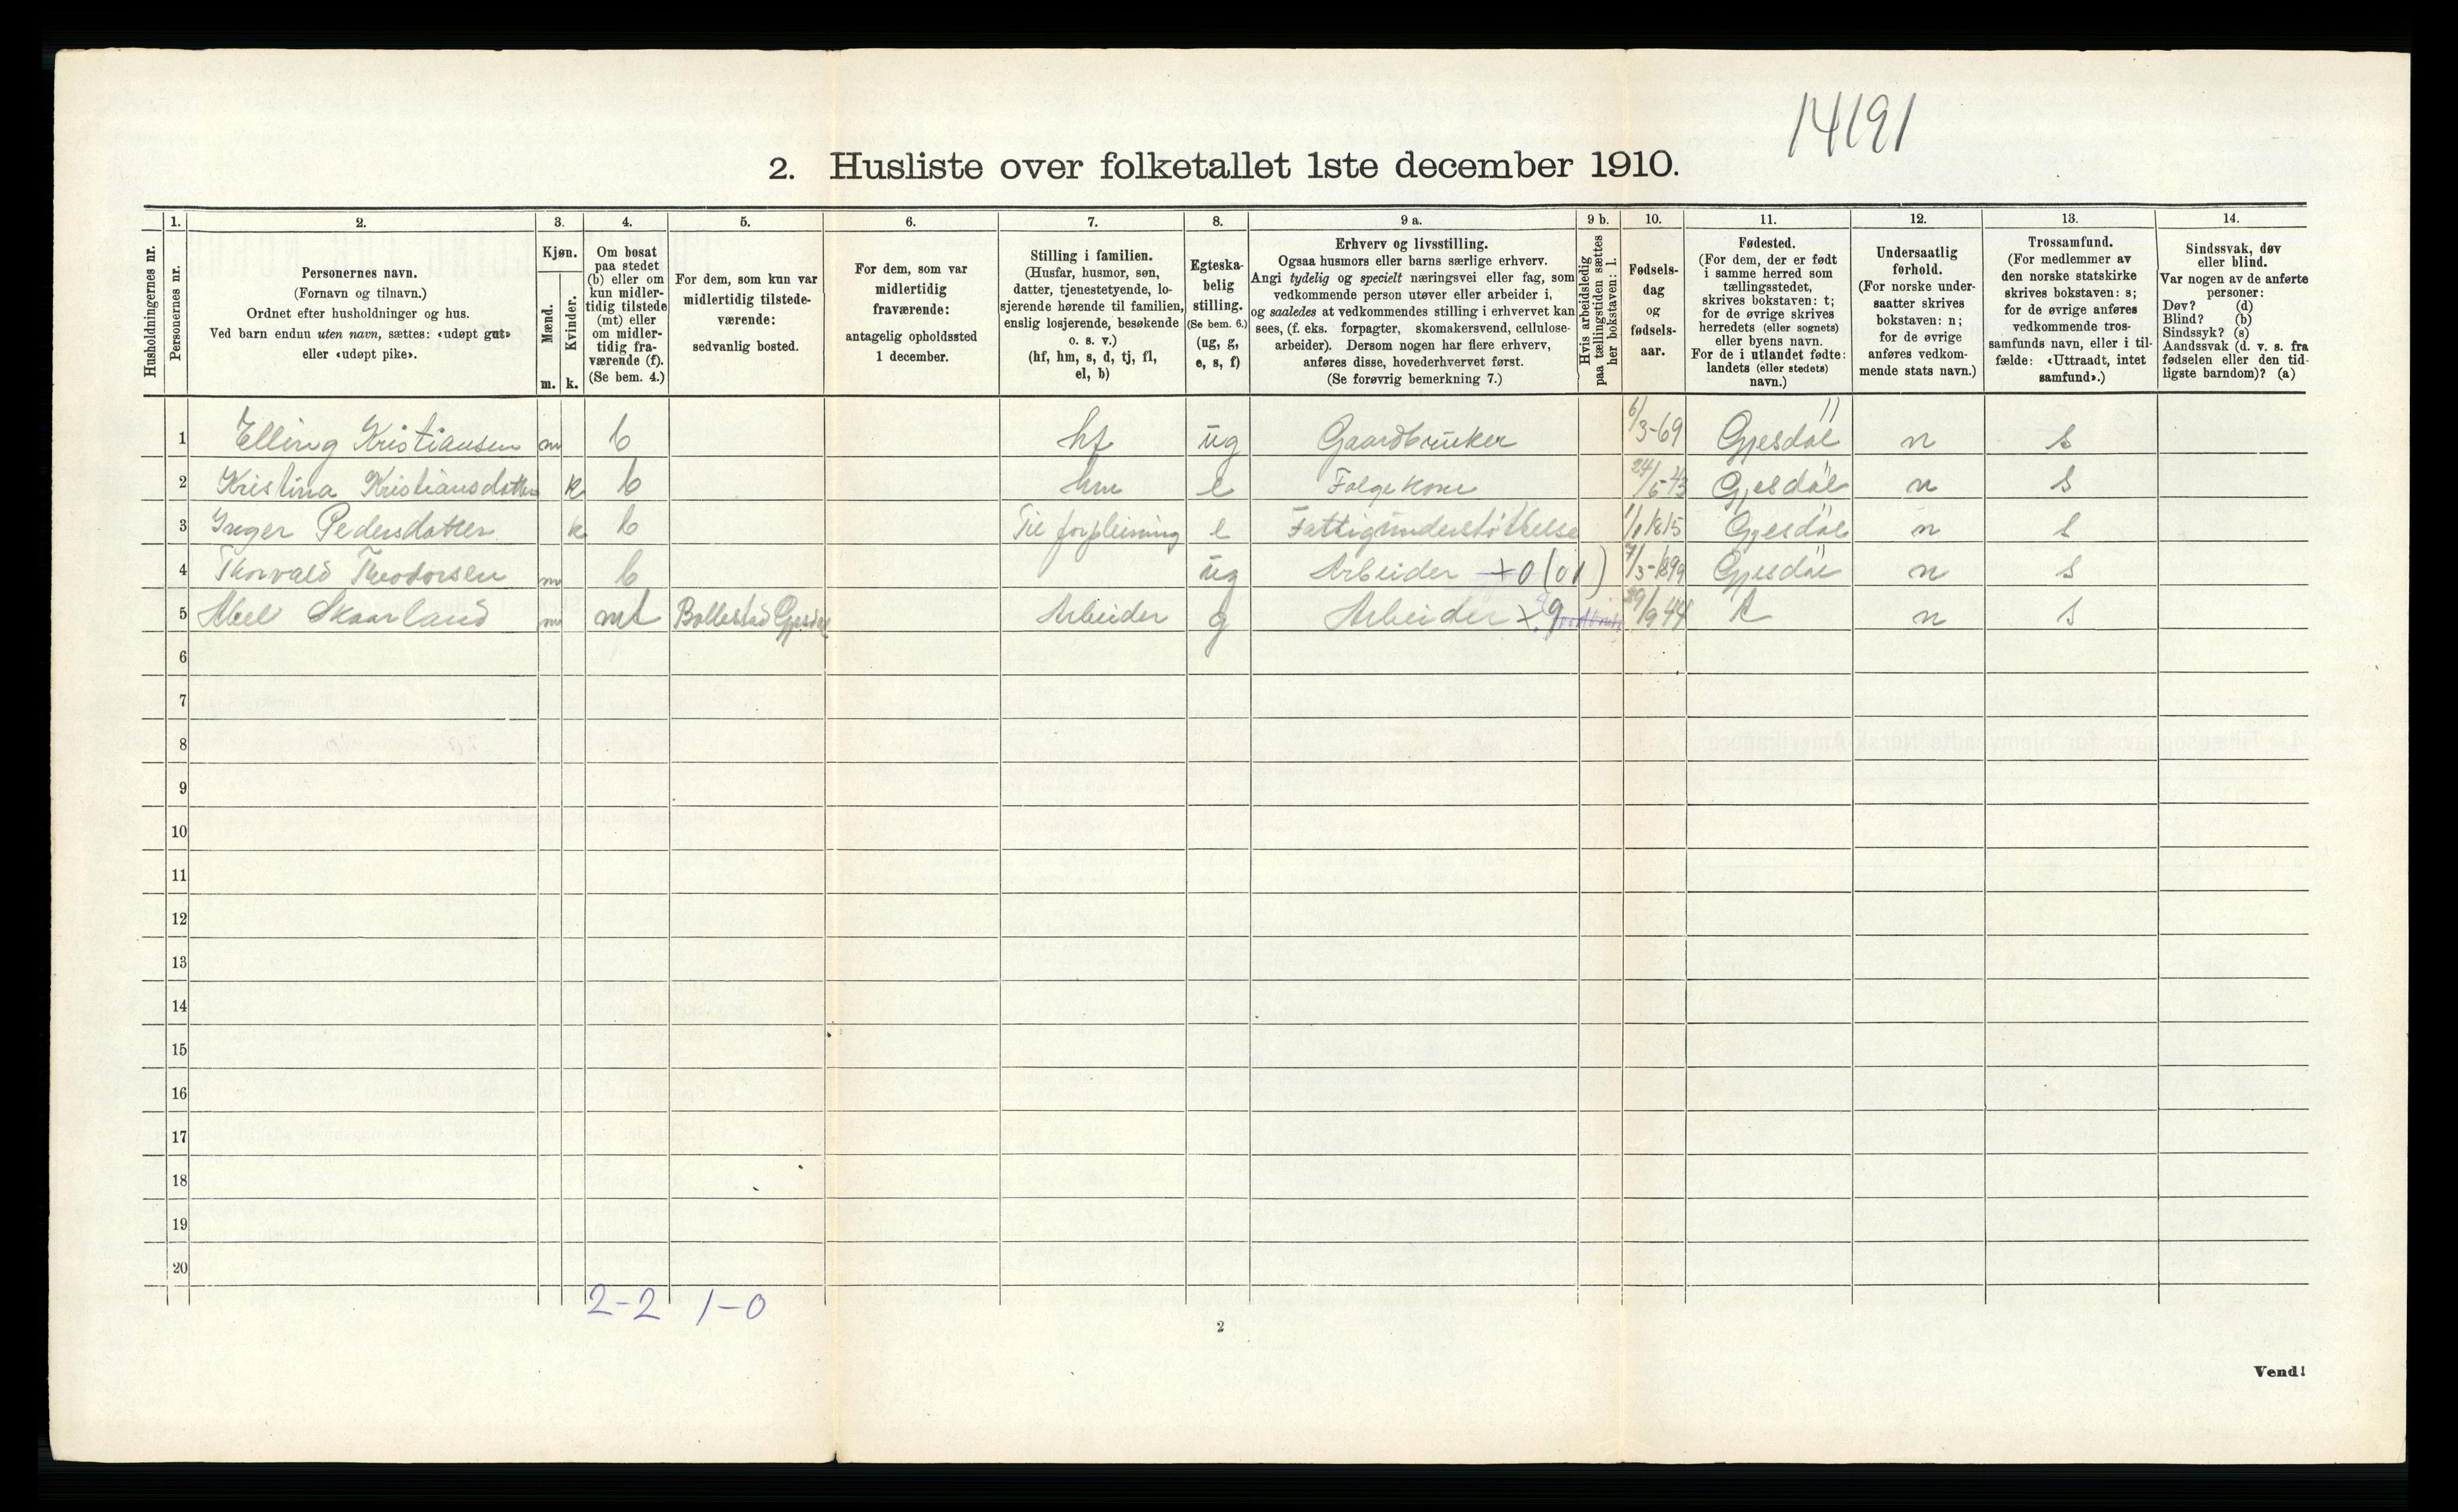 14191
2. Husliste over folketallet 1ste december 1910.
Husholdningernes nr.
1.
Personernes nr.
2.
Personernes navn.
(Fornavn og tilnavn.)
Ordnet efter husholdninger og hus.
Ved barn endnu uten navn, sættes: «udøpt gut»
eller «udøpt pike».
3.
Kjøn.
Mænd.
Kvinder.
m. k.
4.
Om bosat
paa stedet
(b) eller om
kun midler-
tidig tilstede
(mt) eller
om midler-
tidig fra-
værende (f).
(Se bem. 4.)
5.
For dem, som kun var
midlertidig tilstede-
værende:
sedvanlig bosted.
6.
For dem, som var
midlertidig
fraværende:
antagelig opholdssted
1 december.
7.
Stilling i familien.
(Husfar, husmor, søn,
datter, tjenestetyende, lo-
sjerende hørende til familien,
enslig losjerende, besøkende
o. s. v.)
(hf, hm, s, d, tj, fl,
el, b)
8.
Egteska-
belig
stilling.
(Se bem. 6.)
(ug, g,
e, s, f)
9 a.
Erhverv og livsstilling.
Ogsaa husmors eller barns særlige erhverv.
Angi tydelig og specielt næringsvei eller fag, som
vedkommende person utøver eller arbeider i,
og saaledes at vedkommendes stilling i erhvervet kan
sees, (f. eks. forpagter, skomakersvend, cellulose-
arbeider). Dersom nogen har flere erhverv,
anføres disse, hovederhvervet først.
(Se forøvrig bemerkning 7.)
9 b.
Hvis arbeidsledig
paa tællingstiden sættes
her bokstaven: l.
10.
Fødsels-
dag
og
fødsels-
aar.
11.
Fødested.
(For dem, der er født
i samme herred som
tællingsstedet,
skrives bokstaven: t;
for de øvrige skrives
herredets (eller sognets)
eller byens navn.
For de i utlandet fødte:
landets (eller stedets)
navn.)
12.
Undersaatlig
forhold.
(For norske under-
saatter skrives
bokstaven: n;
for de øvrige
anføres vedkom-
mende stats navn.)
13.
Trossamfund.
(For medlemmer av
den norske statskirke
skrives bokstaven: s;
for de øvrige anføres
vedkommende tros-
samfunds navn, eller i til-
fælde: «Uttraadt, intet
samfund».)
14.
Sindssvak, døv
eller blind.
Var nogen av de anførte
personer:
Døv? (d)
Blind? (b)
Sindssyk? (s)
Aandssvak (d. v. s. fra
fødselen eller den tid-
ligste barndom)? (a)
1 Elling Kristiansen m b hf ug Gaardbruker 6/3-69 Gjesdal n s
2 Kristina Kristiansdatter k b hm e Folgekone 24/6-43 Gjesdal n s
3 Inger Pedersdatter k b Til forpleining e Fattigunderstøttelse 1/1 1815 Gjesdal n s
4 Thorvald Theodorsen m b ug Arbeider x0 (01) 7/3-1899 Gjesdal n s
5 Abel Skaarland m mt Bollestad Gjesdal Arbeider g Arbeider x 9 29/9 44 t n s
6
7
8
9
10
11
12
13
14
15
16
17
18
19
20
2-2 1-0
2
Vend!